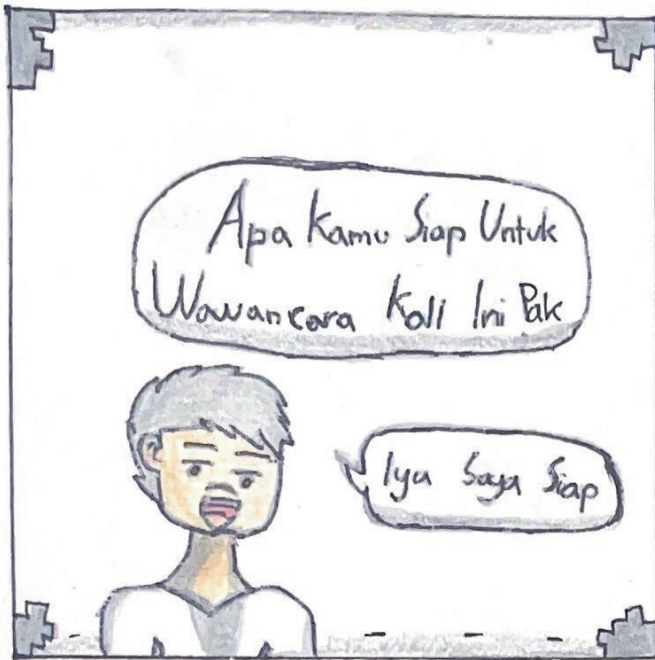 Apa Kamu Siap Untuk
Wawancara Kali Ini Pak
Iya Saya Siap